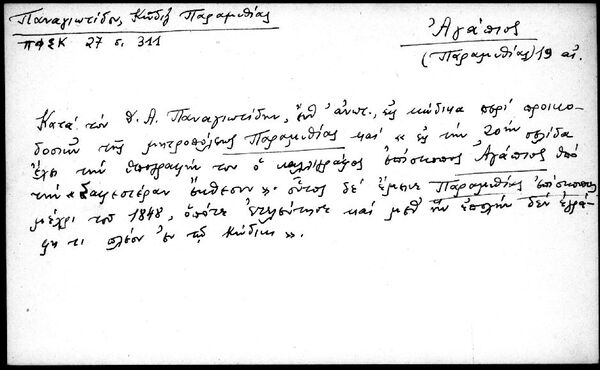 Παναγιωτίδου, Κῶδιξ Παραμυθίας
ΠΦΣΚ 27 σ. 311
Ἀγάπιος
(Παραμυθίας) 19 αἰ.
Κατὰ τὸν Δ. Α. Παναγιωτίδην, ἔνθ' ἀνωτ., εἰς κώδικα περὶ προικο-
δοσιῶν τῆς μητροπόλεως Παραμυθίας καὶ « εἰς τὴν 20ὴν σελίδα
ἔχει τὴν ὑπογραφήν του ὁ καλλιγράφος ἐπίσκοπος Ἀγάπιος ὑπὸ
τὴν « Σαφεστέραν ἔκθεσιν » · οὗτος δὲ ἔμεινε Παραμυθίας ἐπίσκοπος
μέχρι τοῦ 1848, ὁπότε ἐτελεύτησε καὶ μεθ' ἣν ἐποχὴν δὲν ἐγρά-
φη τι πλέον ἐν τῷ Κώδικι ».